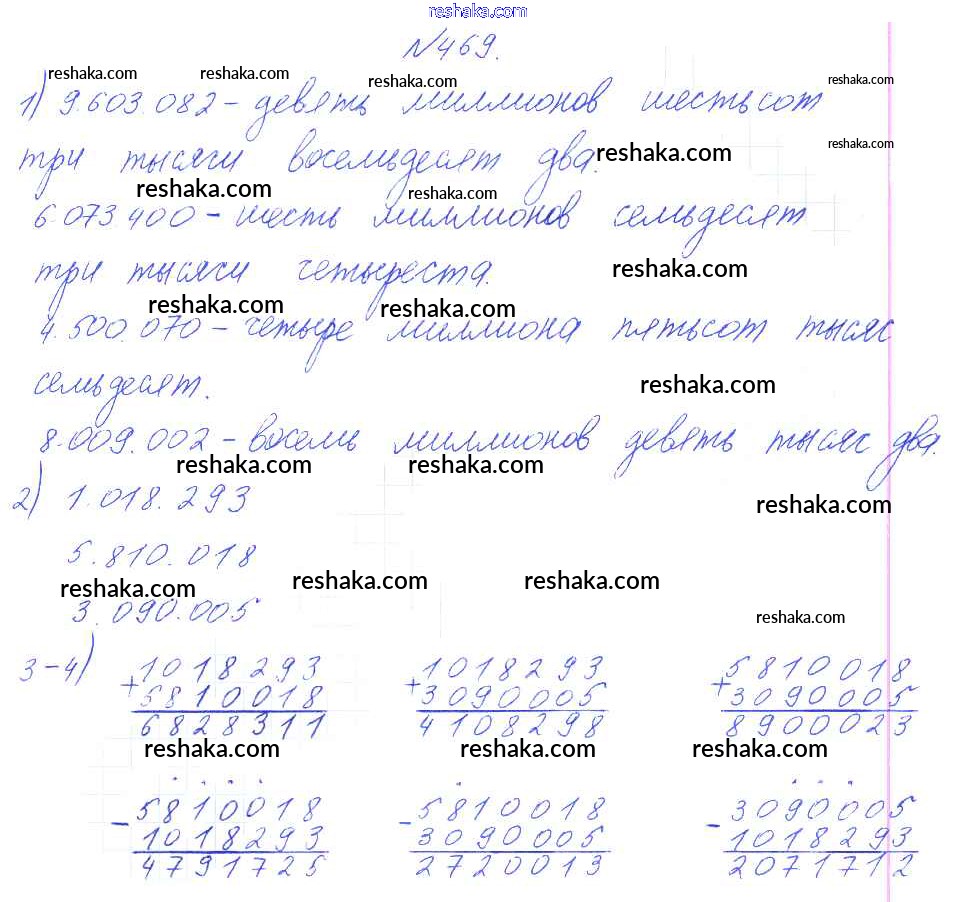 reshaka.com
№469.
reshaka.com reshaka.com reshaka.com reshaka.com
1) 9.603.082 – девять миллионов шестьсот
reshaka.com
три тысячи восемьдесят два. reshaka.com
reshaka.com reshaka.com
6.073.400 – шесть миллионов семьдесят
три тысячи четыреста. reshaka.com
reshaka.com reshaka.com
4.500.070 – четыре миллиона пятьсот тысяч
семьдесят. reshaka.com
8.009.002 – восемь миллионов девять тысяч два.
reshaka.com reshaka.com
2) 1.018.293 reshaka.com
5.810.018
reshaka.com reshaka.com reshaka.com
3.090.005 reshaka.com
3-4) 1018293 1018293 5810018
+ 5810018 + 3090005 + 3090005
6828311 4108298 8900023
reshaka.com reshaka.com reshaka.com
5810018 5810018 3090005
- 1018293 - 3090005 - 1018293
4791725 2720013 2071712